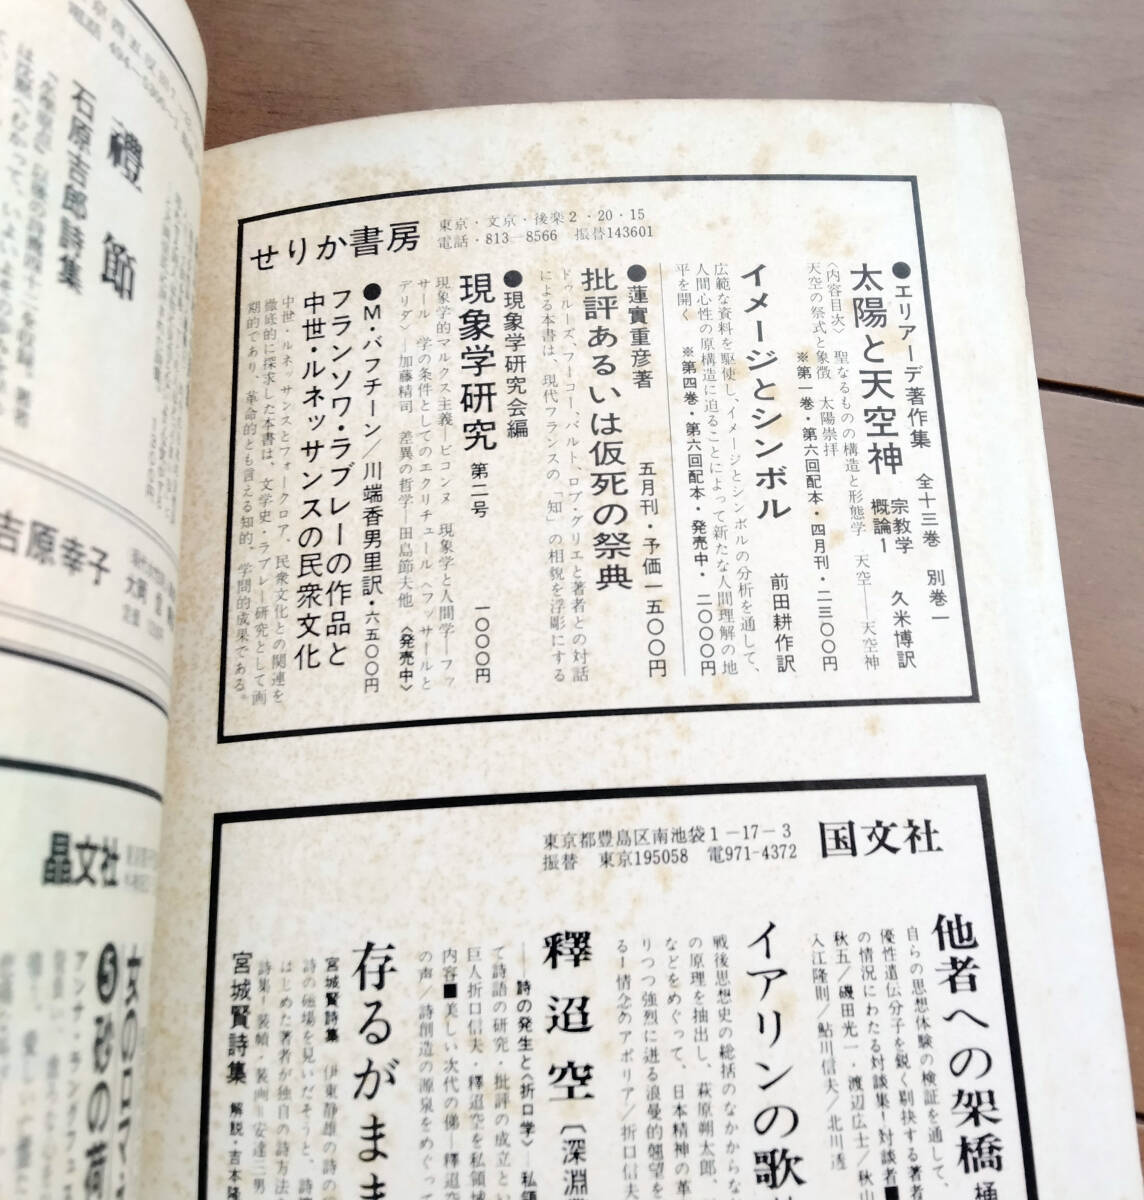 せりか書房
東京・文京・後楽2・20・15
電話・813―8566 振替143601
●エリアーデ著作集 全十三巻 別巻一
太陽と天空神 宗教学概論1 久米博訳
〈内容目次〉 聖なるものの構造と形態学 天空――天空神
天空の祭式と象徴 太陽崇拝
※第一巻・第六回配本・四月刊・二三〇〇円
イメージとシンボル 前田耕作訳
広範な資料を駆使し、イメージとシンボルの分析を通して、
人間心性の原構造に迫ることによって新たな人間理解の地
平を開く ※第四巻・第六回配本・発売中・二〇〇〇円
●蓮實重彦著 五月刊・予価一五〇〇円
批評あるいは仮死の祭典
ドゥルーズ、フーコー、バルト、ロブ・グリエと著者との対話
による本書は、現代フランスの「知」の相貌を浮彫にする
●現象学研究会編
現象学研究 第二号 一〇〇〇円
現象学的マルクス主義―ピコンヌ 現象学と人間学―フッ
サール 学の条件としてのエクリチュール〈フッサールと
デリダ〉―加藤精司 差異の哲学―田島節夫他 〈発売中〉
●M・バフチーン/川端香男里訳・六五〇〇円
フランソワ・ラブレーの作品と
中世・ルネッサンスの民衆文化
中世・ルネッサンスとフォークロア、民衆文化との関連を
徹底的に探求した本書は、文学史・ラブレー研究として画
期的であり、革命的とも言える知的、学問的成果である。
国文社
東京都豊島区南池袋1－17－3
振替 東京195058 電971-4372
他者への架橋
自らの思想体験の検証を通して、
優性遺伝分子を鋭く剔抉する著者
の情況にわたる対談集！対談者■
秋五/磯田光一・渡辺広士/秋山
入江隆則/鮎川信夫/北川透
イアリンの歌
戦後思想史の総括のなかからな
の原理を抽出し、萩原朔太郎、
などをめぐって、日本精神の革
りつつ強烈に迸る浪曼的翹望を
る！情念のアポリア/折口信夫
釋迢空〔深淵
――詩の発生と〈折口学〉―私領
て詩語の研究・批評の成立とい
巨人折口信夫・釋迢空を私領域
内容■美しい次代の佛―釋迢空
の声/詩創造の源泉をめぐって
存るがまま
宮城賢詩集 伊東静雄の詩の
詩の磁場を見いだそうと、詩
はじめた著者が独自の詩方法
詩集！装幀・装画＝安達三男
宮城賢詩集 解説・吉本隆
禮節
石原吉郎詩集
吉原幸子
大岡信
晶文社
女のロマ
❺砂の荷